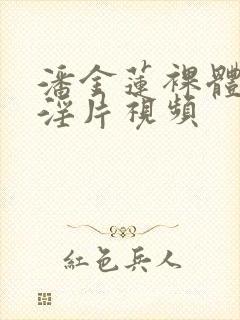 潘金蓮裸體
淫片視頻
紅色兵人